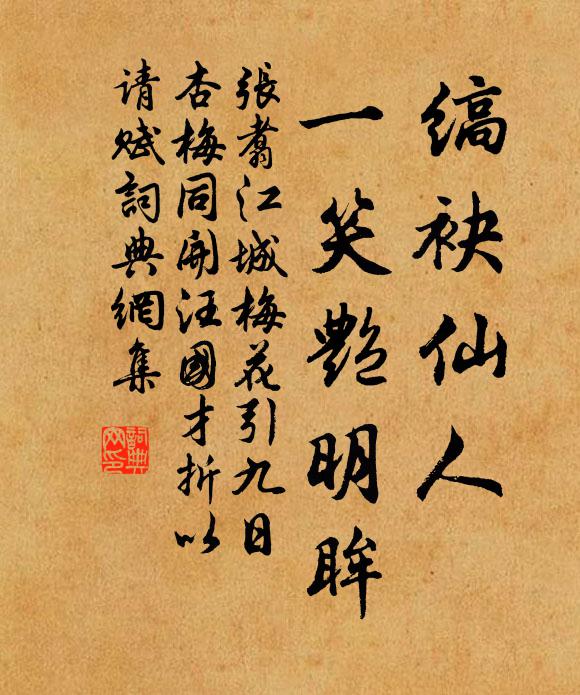 縞袂仙人
一笑艷明眸
張翥江城梅花引九日
杏梅同開汪國才折以
請賦詞典網集
詞典網印